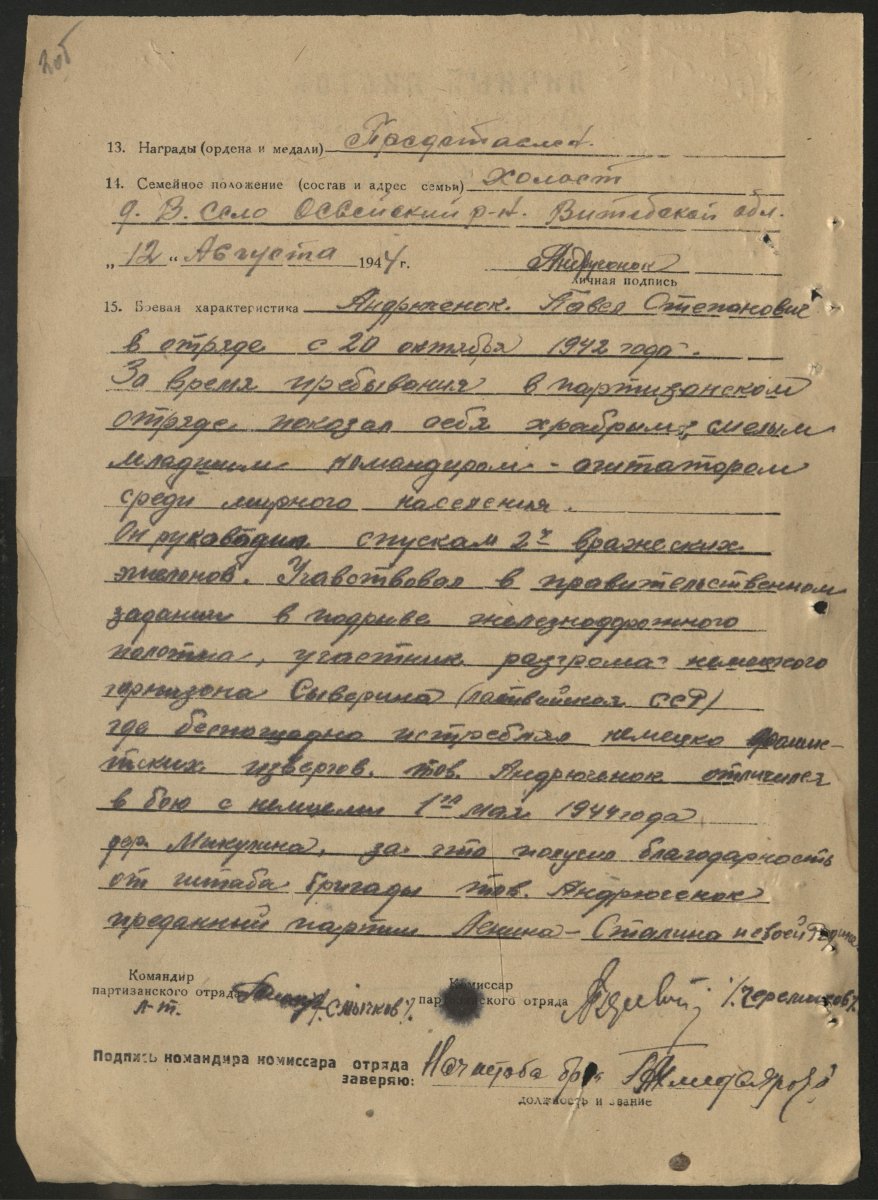 13. Награды (ордена и медали) Представлен.
14. Семейное положение (состав и адрес семьи) Холост
д. В. село Освейский р-н. Витебской обл.
„12“ Августа 1944 г.
личная подпись
15. Боевая характеристика Андрюченок. Павел Степанович
в отряде с 20 октября 1942 года.
За время пребывания в партизанском
отряде показал себя храбрым, смелым
младшим командиром - агитатором
среди мирного населения.
Он руководил спускам 2х вражеских
эшелонов. Учавствовал в правительственном
задании в подрыве железнодорожного
полотна, участник разгрома немецкого
гарнизона Сыверина (латвийская ССР)
где беспощадно истреблял немецко фашис-
тских извергов. тов. Андрюченок отличился
в бою с немцами 1го мая 1944 года
дер. Микулина, за что получил благодарность
от штаба бригады тов. Андрюченок
преданный партии Ленина - Сталина и своей Родине
Командир
партизанского отряда
л-т. /Смычков/
Комиссар
партизанского отряда
Подпись командира комиссара отряда
заверяю: Нач штаба бриг
должность и звание